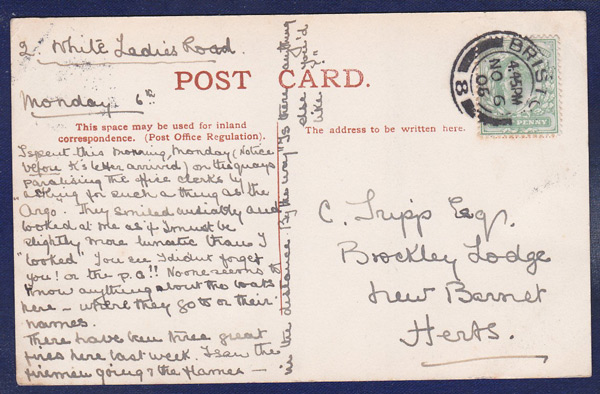 2. White Ladies Road.
POST CARD.
Monday. 6th
This space may be used for inland
correspondence. (Post Office Regulation).
The address to be written here.
I spent this morning, Monday, (Notice
before K's letter arrived) on the quays
paralising the office clerks by
"asking for such a thing as the
Argo". They smiled amiably and
looked at me as if I must be
slightly more lunatic than I
"looked" You see I didn't forget
you! or the p.c!! No one seems to
know anything about the boats
here – where they go to or their
names.
There have been three great
fires here last week. I saw the
firemen going & the flames –
in the distance. By the way "Is there anything
else you'd
like?"
C. Tripp Esq.
Brockley Lodge
New Barnet
Herts.
BRISTOL
4.45PM
NO 6
05
8
PENNY